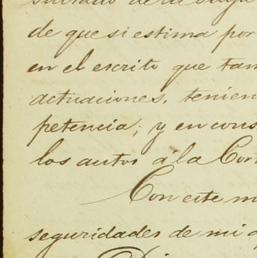 de que si estima por
en el escrito que tam
actuaciones, tenien
petencia; y en cons
los autos a la Cort
Con este m
seguridades de mi